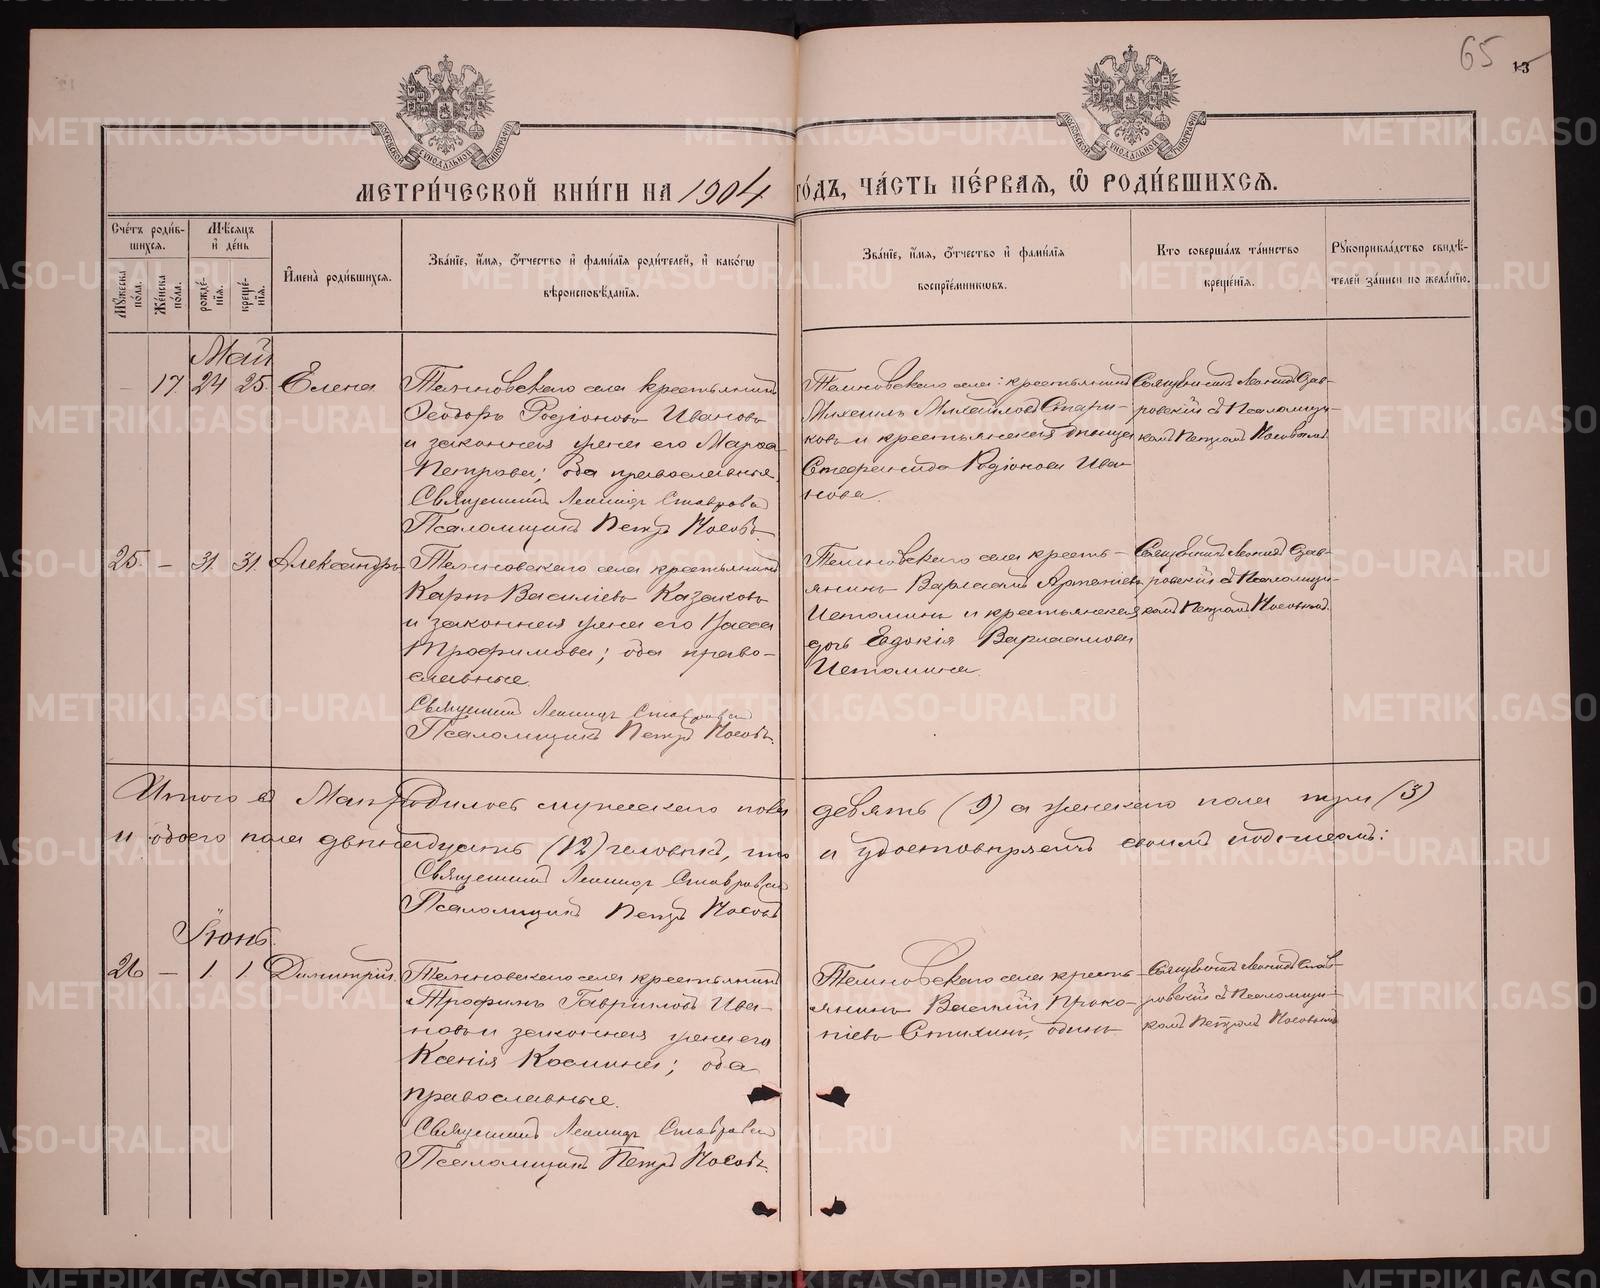 65 13
МОСКОВСКОЙ СУНОДАЛЬНОЙ ТИПОГРАФІИ
МОСКОВСКОЙ СУНОДАЛЬНОЙ ТИПОГРАФІИ
МЕТРИ́ЧЕСКОЙ КНИ́ГИ НА 1904 ГО́ДЪ, ЧА́СТЬ ПЕ́РВАѦ, Ѡ҆ РОДИ́ВШИХСѦ.
Сче́тъ роди́в-
шихсѧ.
Мꙋ́жеска по́ла.
Же́нска по́ла.
Мѣ́сѧцъ и҆ де́нь
рожде́-
нїѧ.
креще́-
нїѧ.
И҆мена̀ роди́вшихсѧ.
Зва́нїе, и҆́мѧ, ѻ҆́тчество и҆ фами́лїѧ роди́телей, и҆ како́гѡ
вѣроисповѣ́данїѧ.
Зва́нїе, и҆́мѧ, ѻ҆́тчество и҆ фами́лїѧ
воспрїе́мникѡвъ.
Кто соверша́лъ та́инство
креще́нїѧ.
Рꙋкоприкла́дство свидѣ́-
телей за́писи по жела́нїю.
Май
— 17. 24 25. Елена
Темновскаго села крестьянинъ
Ѳеодоръ Родіоновъ Ивановъ
и законная жена его Марѳа
Петрова; оба православные.
Священникъ Леонидъ Ставровскій
Псаломщикъ Петръ Носовъ.
Темновскаго села: крестьянинъ
Михаилъ Михайловъ Стари-
ковъ и крестьянская дѣвица
Стефанида Родіонова Ива-
нова.
Священникъ Леонидъ Став-
ровскій съ Псаломщи-
комъ Петромъ Носовымъ.
25. — 31. 31. Александръ
Темновскаго села крестьянинъ
Карпъ Василіевъ Казаковъ
и законная жена его Васса
Трофимова; оба право-
славные.
Священникъ Леонидъ Ставровскій
Псаломщикъ Петръ Носовъ.
Темновскаго села кресть-
янинъ Варлаамъ Артеміевъ
Истоминъ и крестьянская
дочь Евдокія Варлаамова
Истомина.
Священникъ Леонидъ Став-
ровскій съ Псаломщи-
комъ Петромъ Носовымъ.
Итого въ Маѣ родилось мужескаго пола девять (9) а женскаго пола три (3)
и обоего пола двѣнадцать (12) человѣкъ, что и удостовѣряемъ своимъ подписомъ:
Священникъ Леонидъ Ставровскій
Псаломщикъ Петръ Носовъ
Іюнь.
26 — 1. 1. Димитрій.
Темновскаго села крестьянинъ
Трофимъ Гавриловъ Ива-
новъ и законная жена его
Ксенія Космина; оба
православные.
Священникъ Леонидъ Ставровскій
Псаломщикъ Петръ Носовъ.
Темновскаго села кресть-
янинъ Василій Проко-
піевъ Стихинъ, одинъ.
Священникъ Леонидъ Став-
ровскій съ Псаломщи-
комъ Петромъ Носовымъ
METRIKI.GASO-URAL.RU